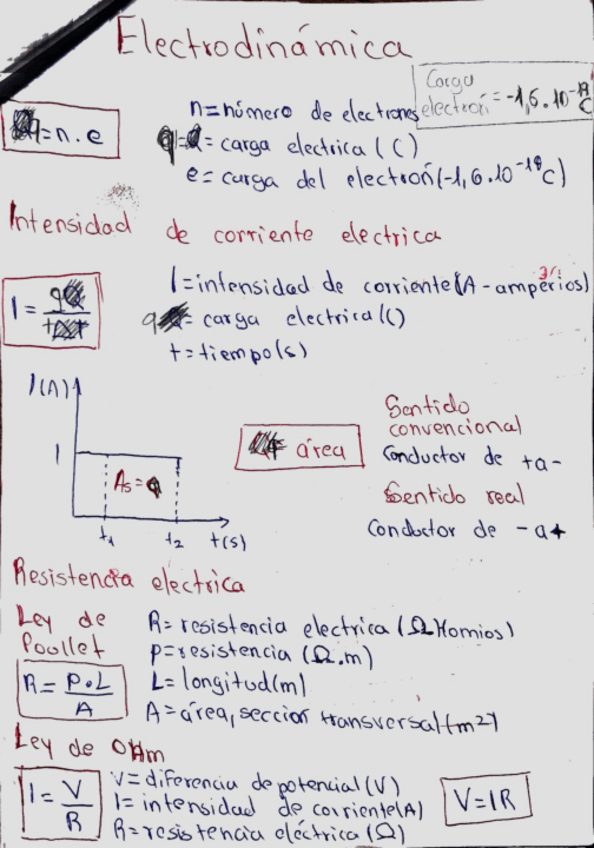 Electrodinámica
Carga
electrón = -1,6.10^-19 C
q=n.e
n=número de electrones
q = carga electrica (C)
e= carga del electrón(-1,6.10^-19 C)
Intensidad de corriente electrica
I = q/t
I=intensidad de corriente(A-amperios)
q = carga electrica(C)
t=tiempo(s)
I(A)
I
As = q
t1 t2 t(s)
área
Sentido
convencional
Conductor de +a-
Sentido real
Conductor de -a+
Resistencia electrica
Ley de
Poullet
R= resistencia electrica (Ω Homios)
p=resistencia (Ω.m)
R= P.L/A
L= longitud(m)
A=área, seccion transversal(m2)
Ley de OHm
I = V/R
V= diferencia de potencial(V)
I= intensidad de corriente(A)
R=resistencia eléctrica(Ω)
V=IR